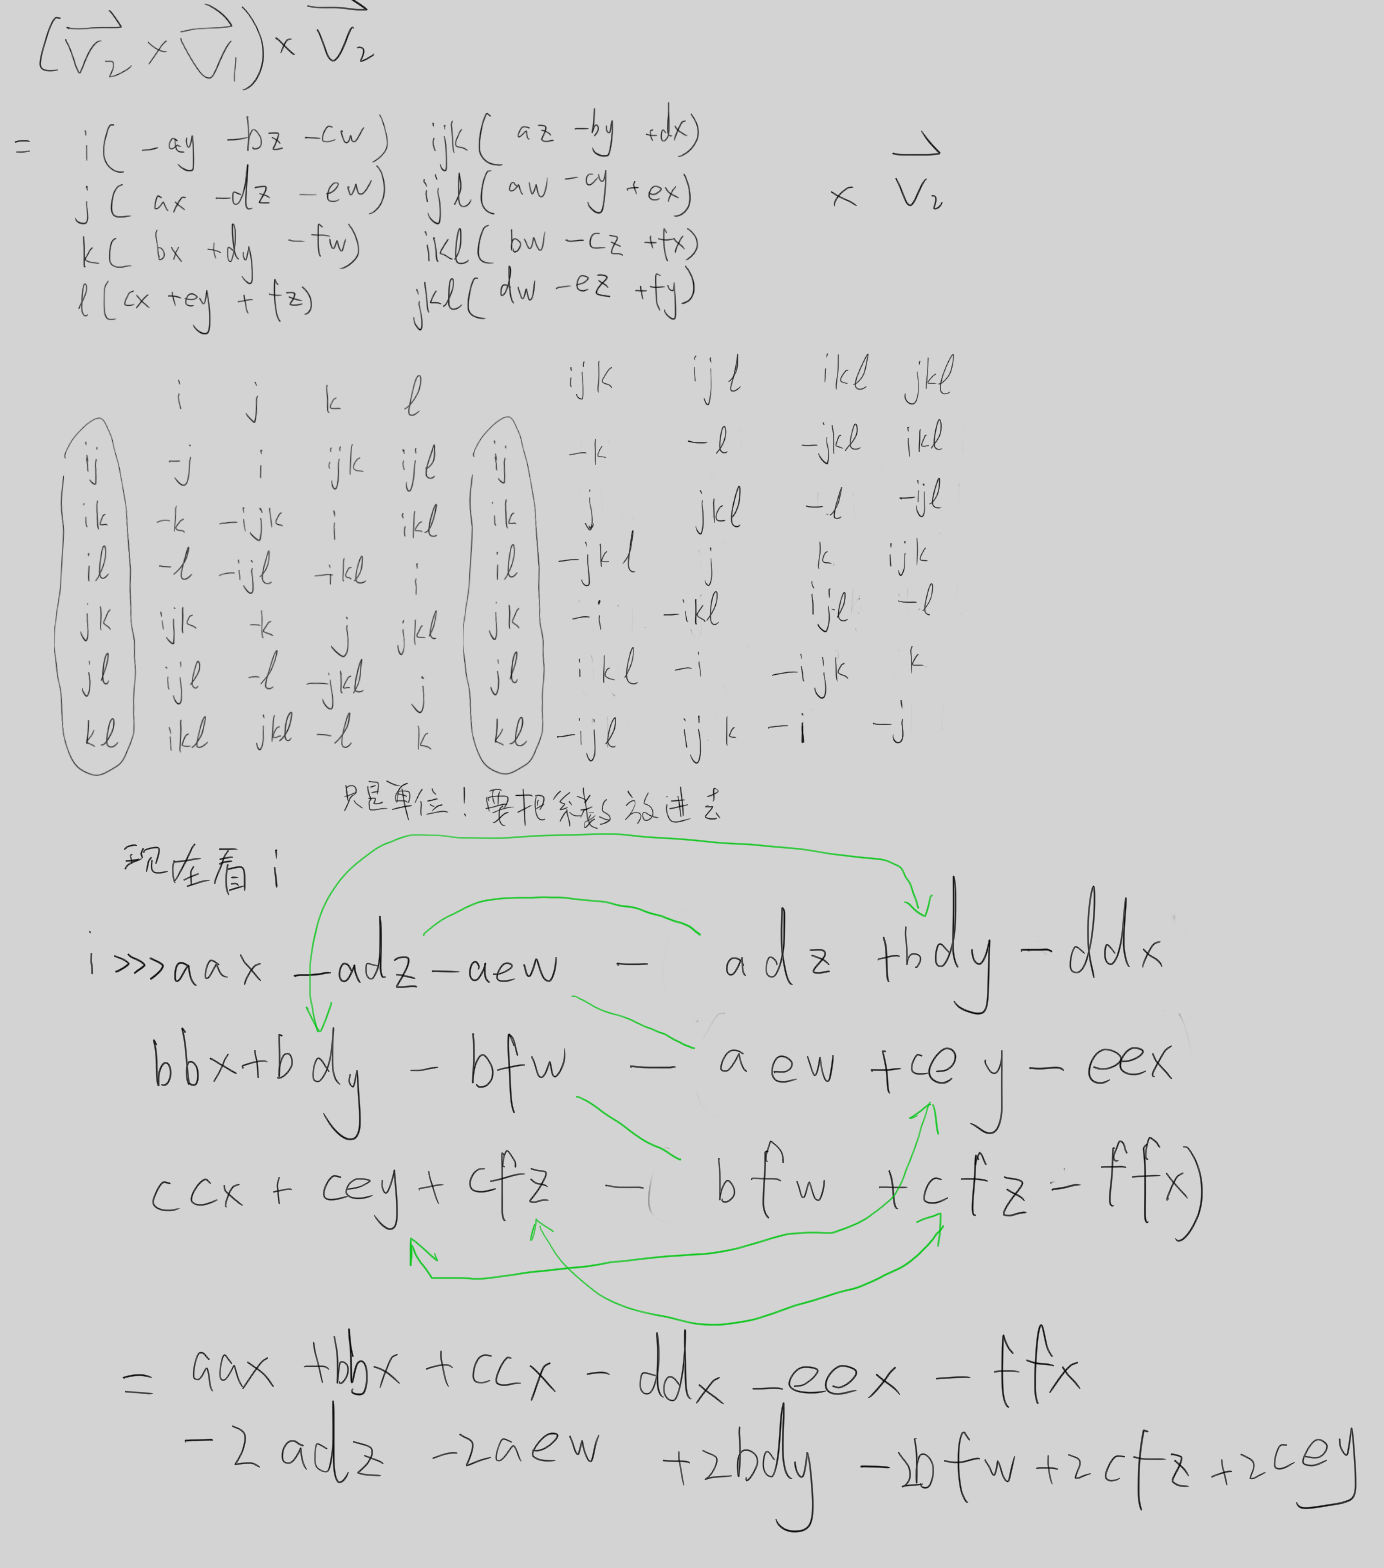 (V₂ × V₁) × V₂
= i( -ay -bz -cw) ijk( az -by +dx)
j( ax -dz -ew) ijl( aw -cy +ex) × V₂
k( bx +dy -fw) ikl( bw -cz +fx)
l( cx +ey + fz) jkl( dw -ez +fy)
i j k l ijk ijl ikl jkl
ij -j i ijk ijl ij -k -l -jkl ikl
ik -k -ijk i ikl ik j jkl -l -ijl
il -l -ijl -ikl i il -jkl j k ijk
jk ijk -k j jkl jk -i -ikl ijl -l
jl ijl -l -jkl j jl ikl -i -ijk k
kl ikl jkl -l k kl -ijl ijk -i -j
只是單位！要把系數放进去
现在看 i
i >>> aax -adz -aew - adz +bdy -ddx
bbx+bdy - bfw - aew +cey - eex
ccx + cey + cfz -( bfw +cfz - ffx)
= aax +bbx + ccx - ddx -eex - ffx
-2adz -2aew +2bdy -2bfw +2cfz +2cey